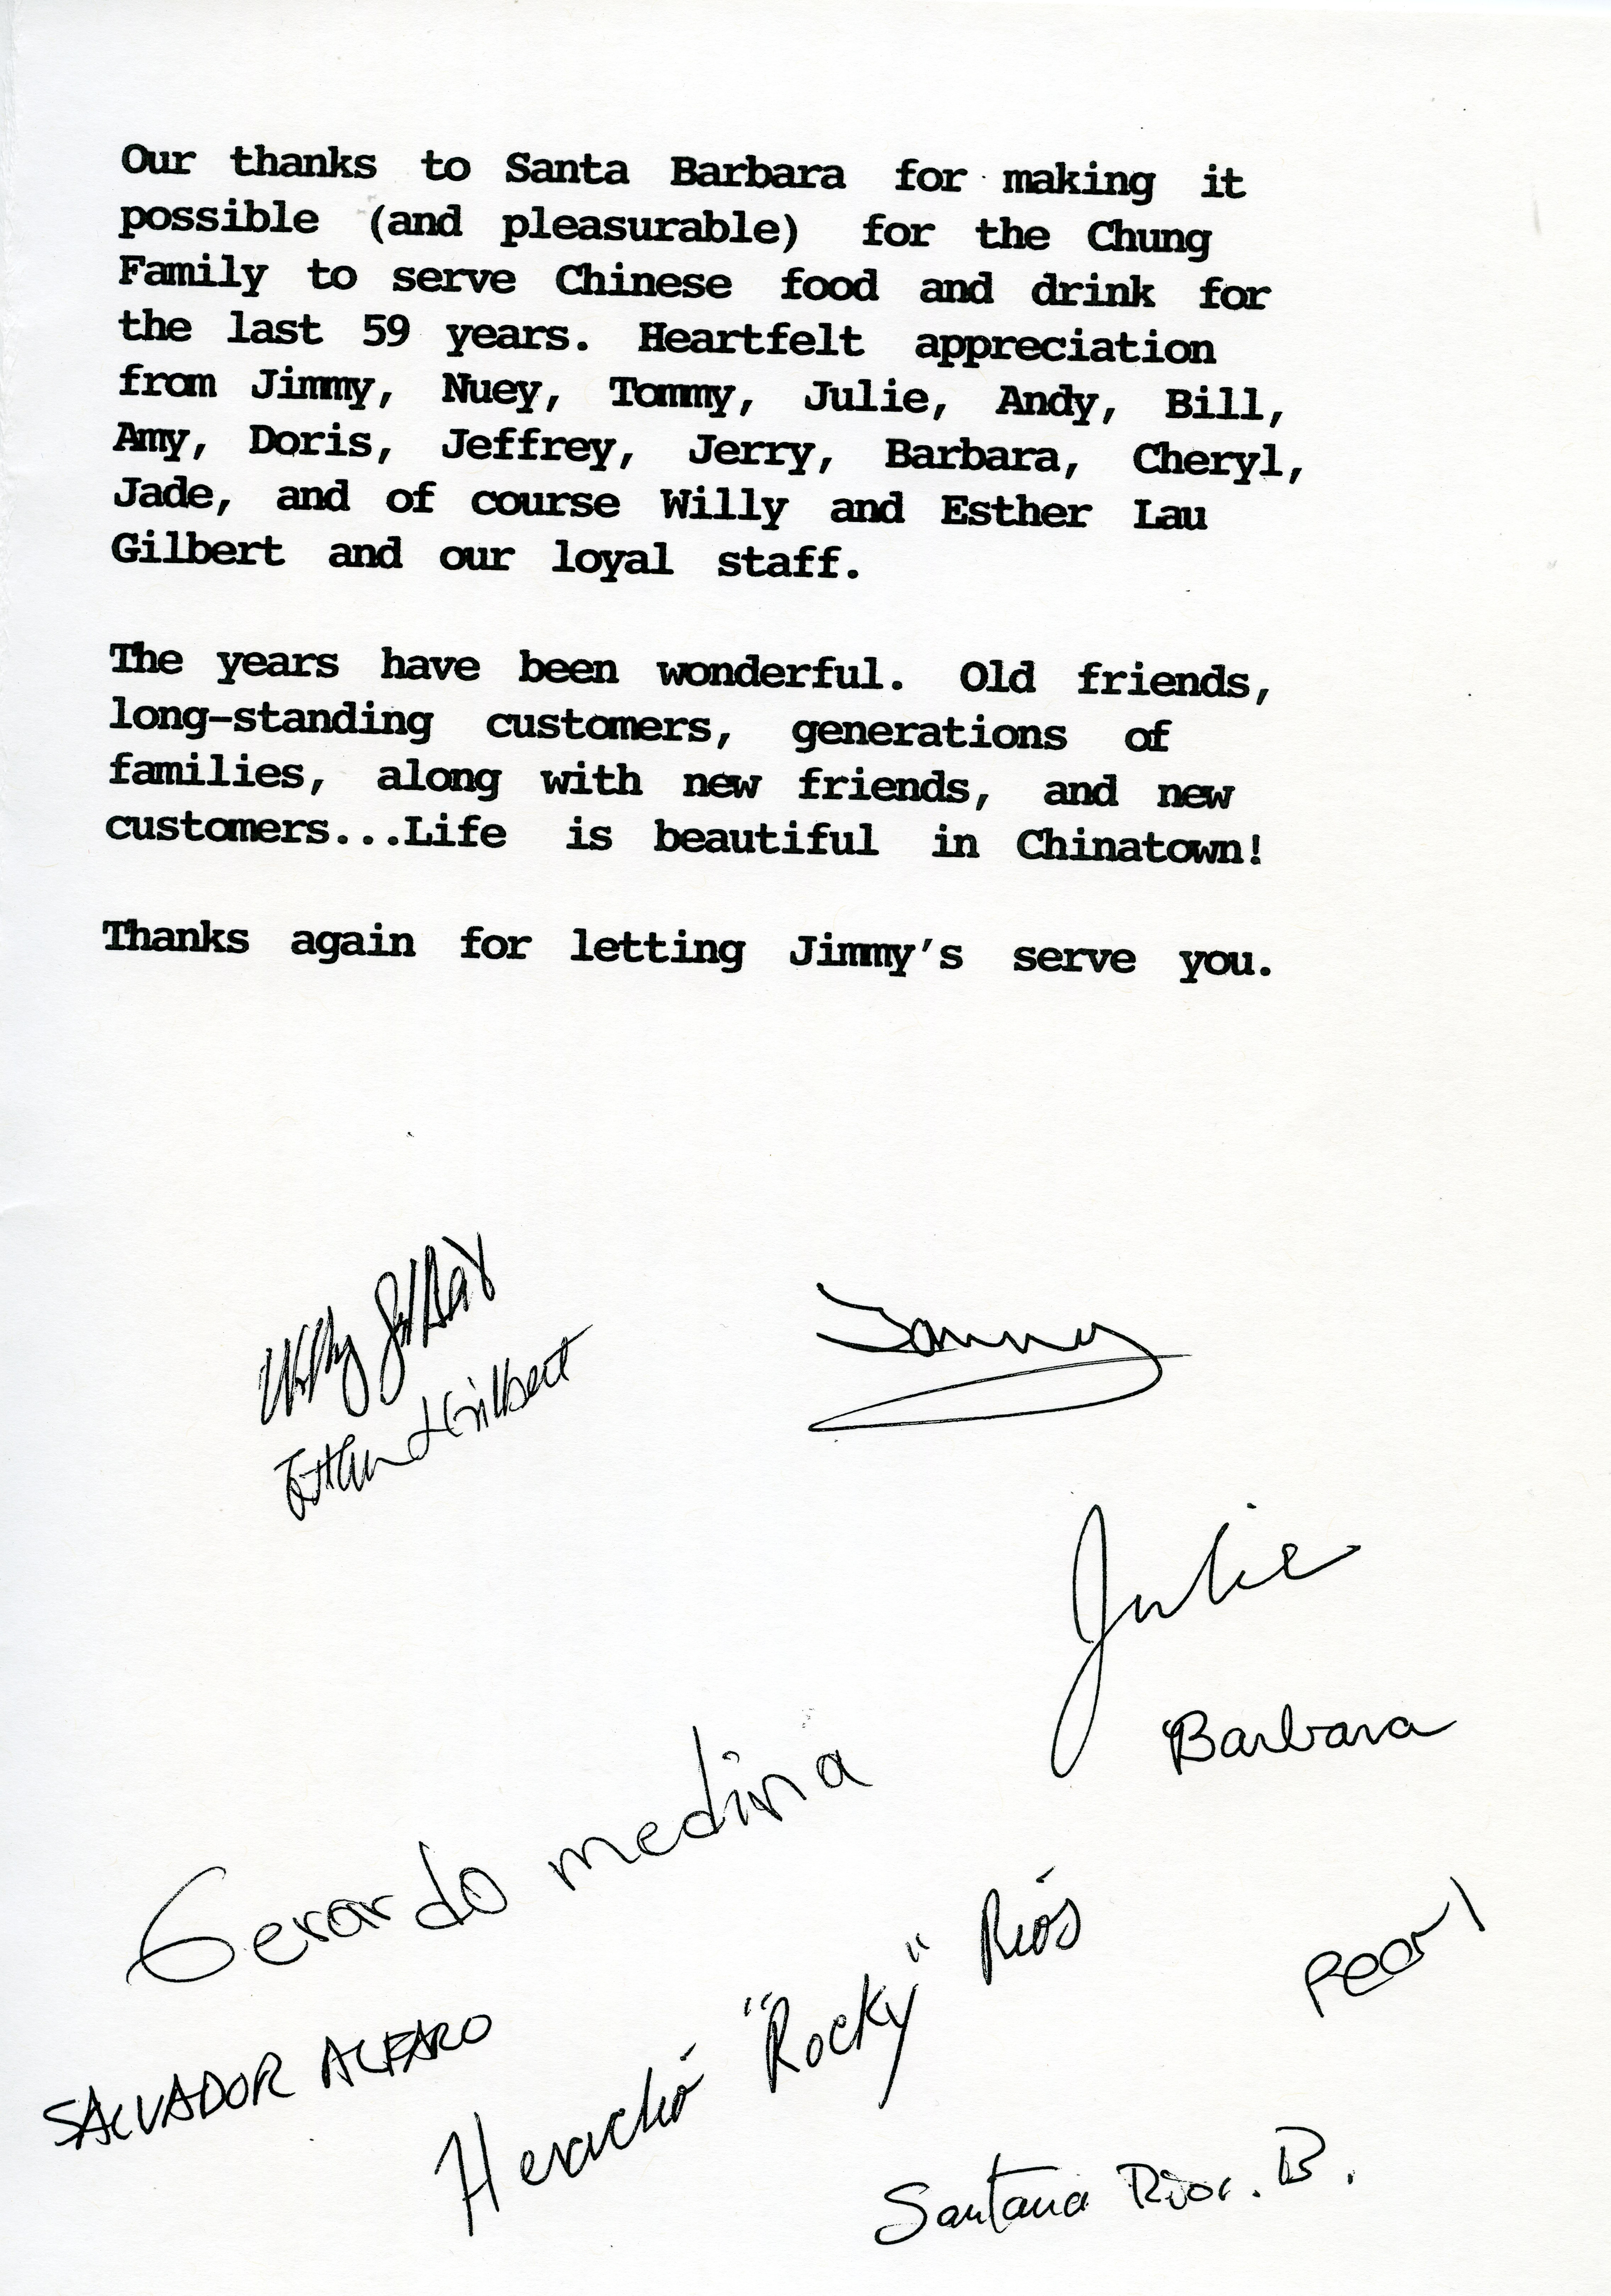 Our thanks to Santa Barbara for making it
possible (and pleasurable) for the Chung
Family to serve Chinese food and drink for
the last 59 years. Heartfelt appreciation
from Jimmy, Nuey, Tommy, Julie, Andy, Bill,
Amy, Doris, Jeffrey, Jerry, Barbara, Cheryl,
Jade, and of course Willy and Esther Lau
Gilbert and our loyal staff.
The years have been wonderful. Old friends,
long-standing customers, generations of
families, along with new friends, and new
customers...Life is beautiful in Chinatown!
Thanks again for letting Jimmy's serve you.
Willy Gilbert
Tommy
Esther L Gilbert
Julie
Barbara
Gerardo medina
Pearl
Heraclió "Rocky" Riós
SALVADOR ALFARO
Santana Rios. B.